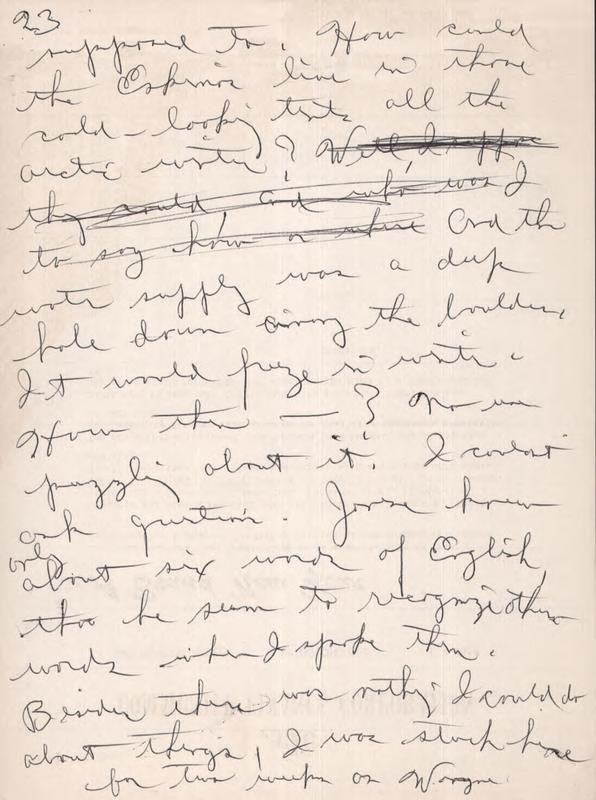 23
supposed to. How could
the Eskimos live in those
cold-looking tents all the
arctic winter? Well, I suppose
they could and who was I
to say how or where And the
water supply was a deep
hole down among the boulders.
It would freeze in winter.
How then — ? No use
puzzling about it. I couldnt
ask question. Jorse knew
only
about six words of English,
thoo he seem to recognize other
words when I spoke them.
Besides there was nothing I could do
about things, I was stuck here
for two weeks as Wayne